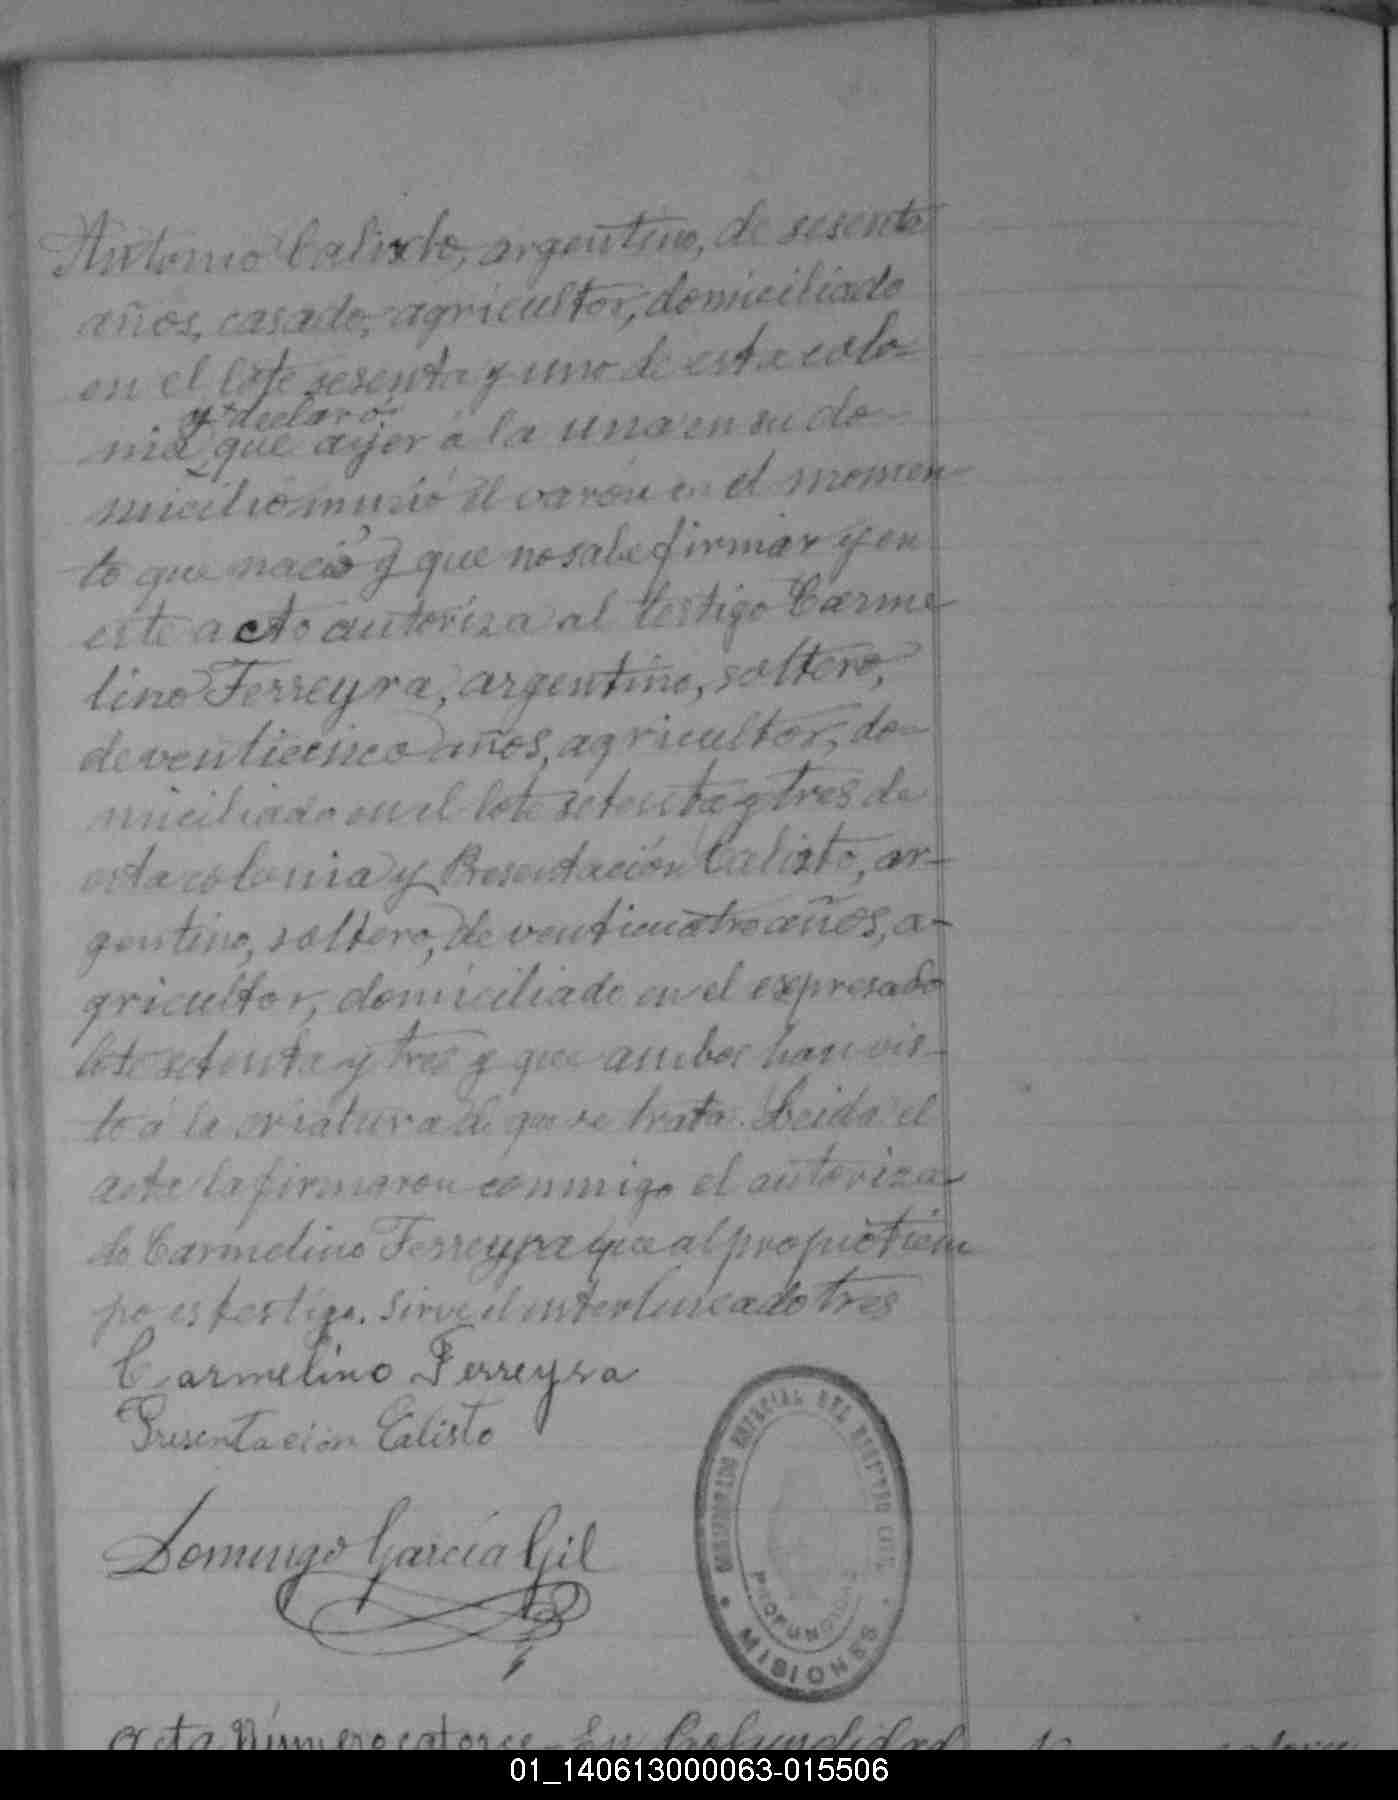 Antonio Calixto, argentino, de sesenta
años, casado, agricultor, domiciliado
en el lote sesenta y uno de esta colo-
y declaró
nia que ayer á la una en su do-
micilio murió el varón en el momen-
to que nació y que no sabe firmar y en
este acto autoriza al testigo Carme-
lino Ferreyra, argentino, soltero,
de venticinco años, agricultor, do-
miciliado en el lote setenta y tres de
esta colonia y Presentación Calixto, ar-
gentino, soltero, de venticuatro años, a-
gricultor, domiciliado en el expresado
lote setenta y tres y que ambos han vis-
to á la criatura de que se trata. Leida el
acta la firmaron conmigo el autoriza-
do Carmelino Ferreyra que al propio tiem
po es testigo. Sirve el interlineado tres
Carmelino Ferreyra
Presentación Calisto
Domingo García Gil
DEL REGISTRO CIVIL
PROFUNDIDAD
MISIONES
Acta Número catorce - En Profundidad
01_140613000063-015506